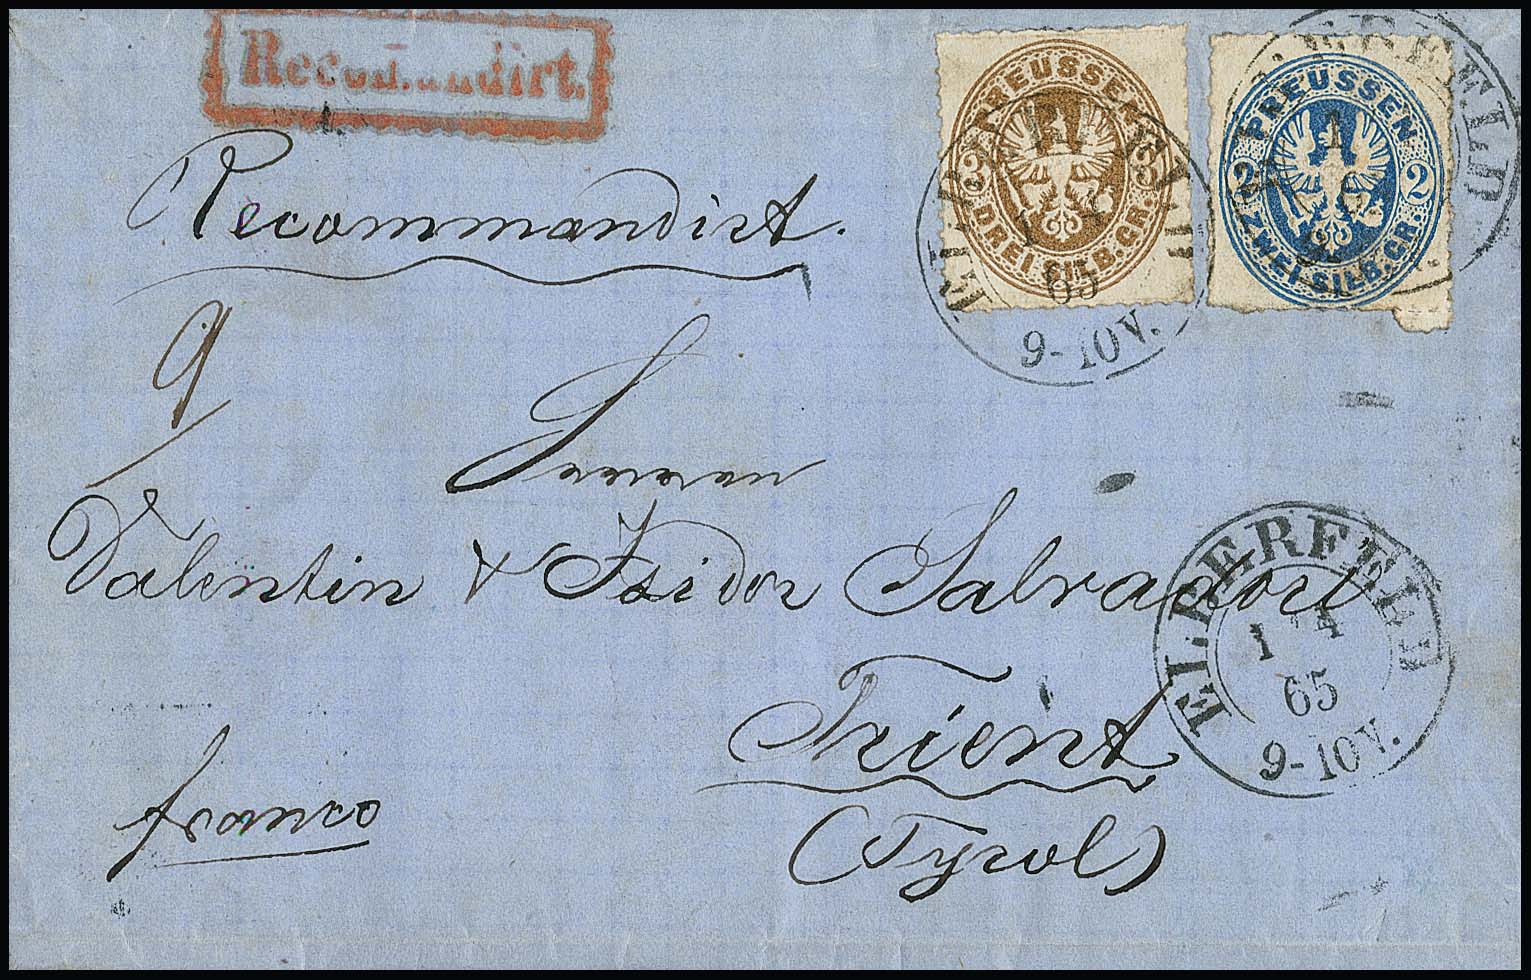 Recommandirt.
PREUSSEN
3 3
DREI SILB. GR.
PREUSSEN
2 2
ZWEI SILB. GR.
65
9-10 V.
Recommandirt.
9
Herren
Valentin & Isidor Salvadori
ELBERFELD
1 4
65
9-10 V.
Trient
(Tyrol)
franco